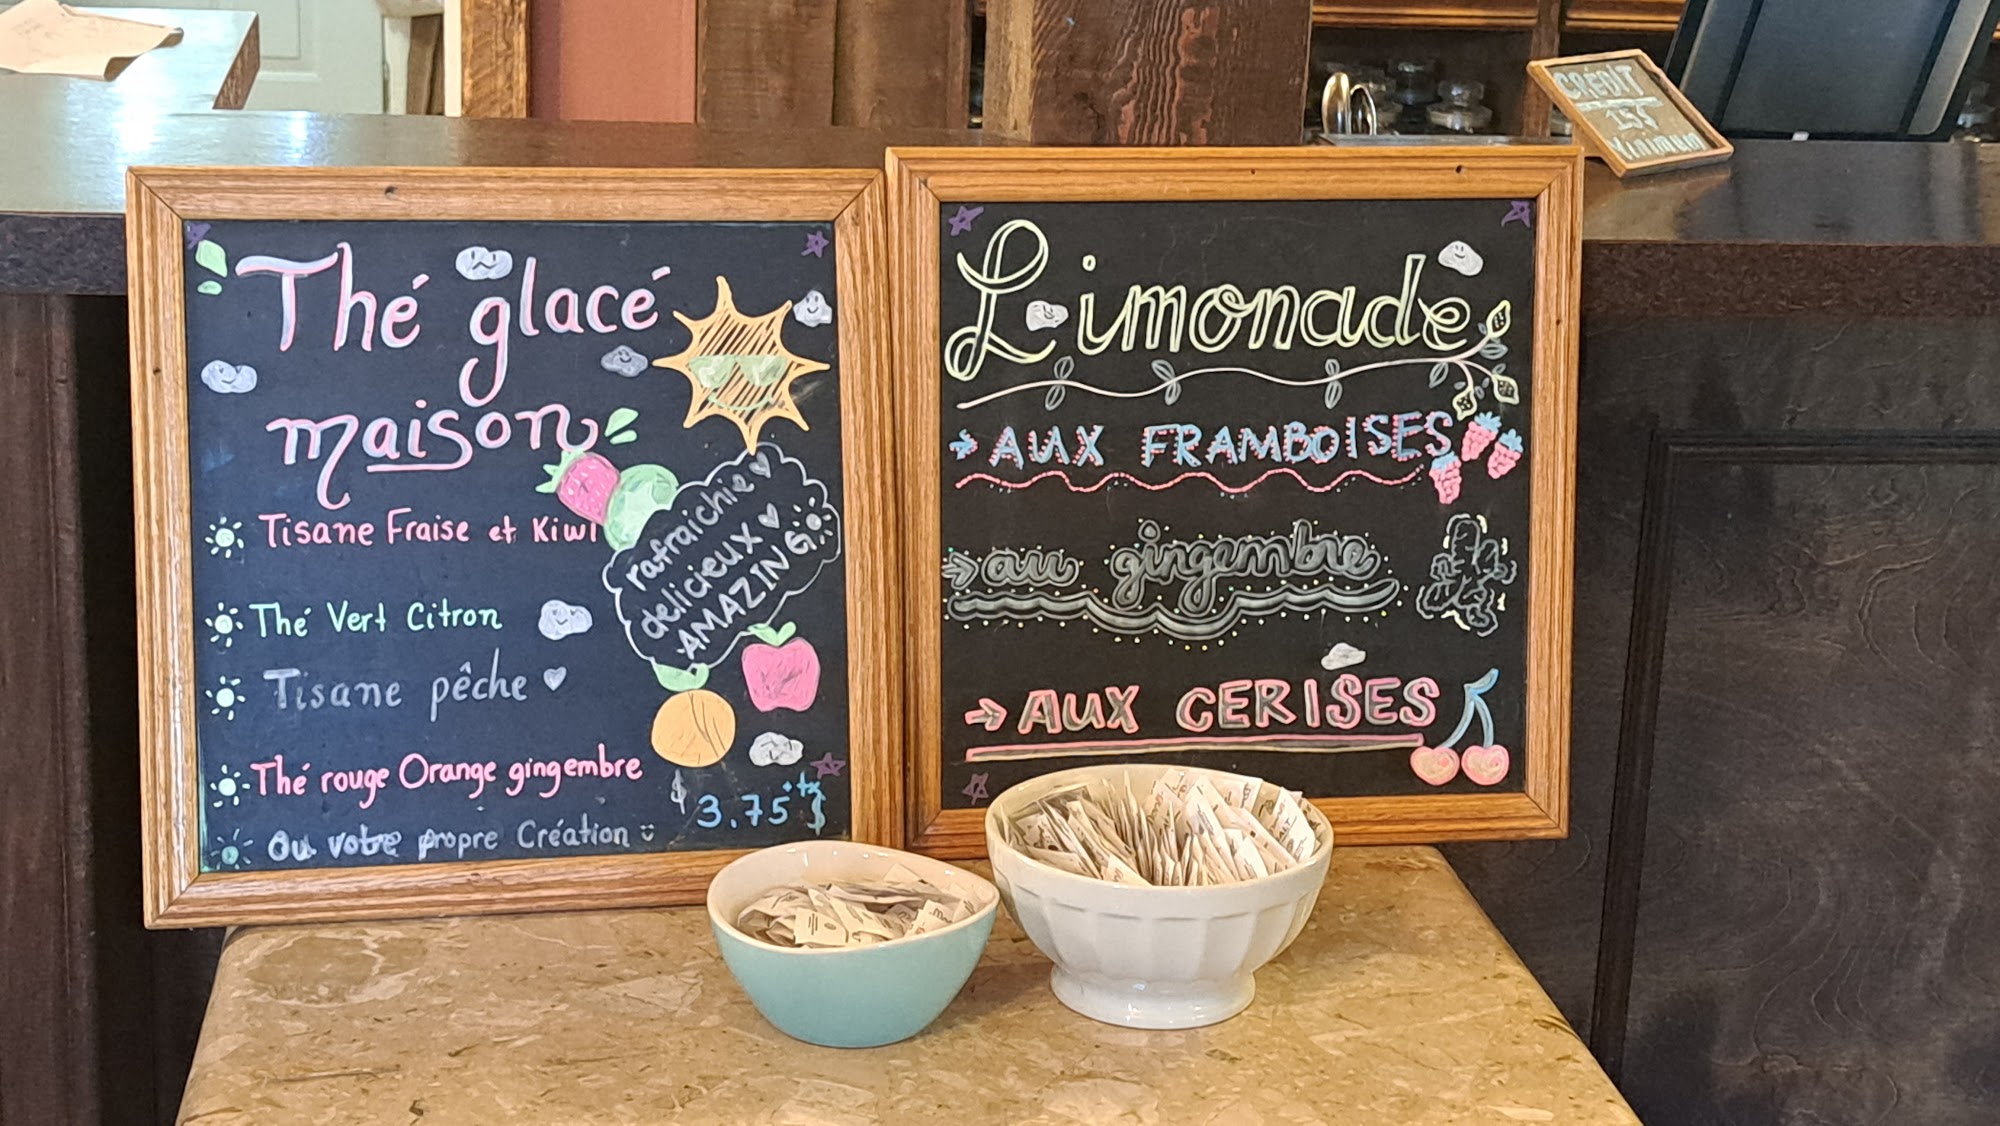 Thé glacé
maison
Tisane Fraise et Kiwi
Thé Vert Citron
Tisane pêche
Thé rouge Orange gingembre
Ou votre propre Création
rafraichie
délicieux
AMAZING
$ 3.75 +tx $
Limonade
AUX FRAMBOISES
au gingembre
AUX CERISES
CRÉDIT
15$
Minimum